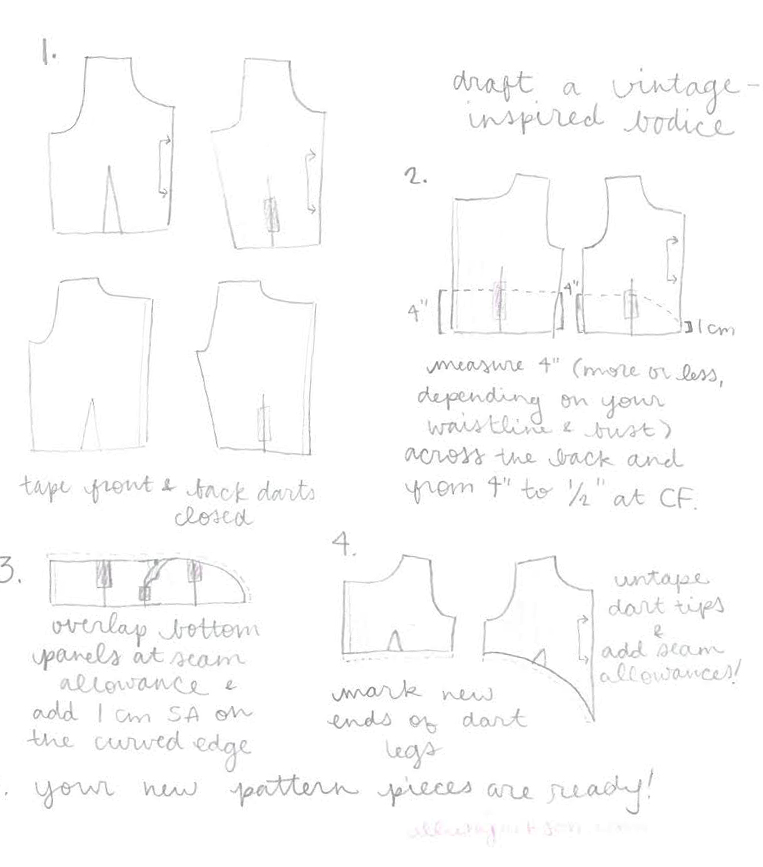 1.
draft a vintage-
inspired bodice
tape front & back darts
closed
2.
4"
4"
1 cm
measure 4" (more or less,
depending on your
waistline & bust)
across the back and
from 4" to 1/2" at CF.
3.
overlap bottom
panels at seam
allowance &
add 1 cm SA on
the curved edge
4.
mark new
ends of dart
legs
untape
dart tips
&
add seam
allowances!
. your new pattern pieces are ready!